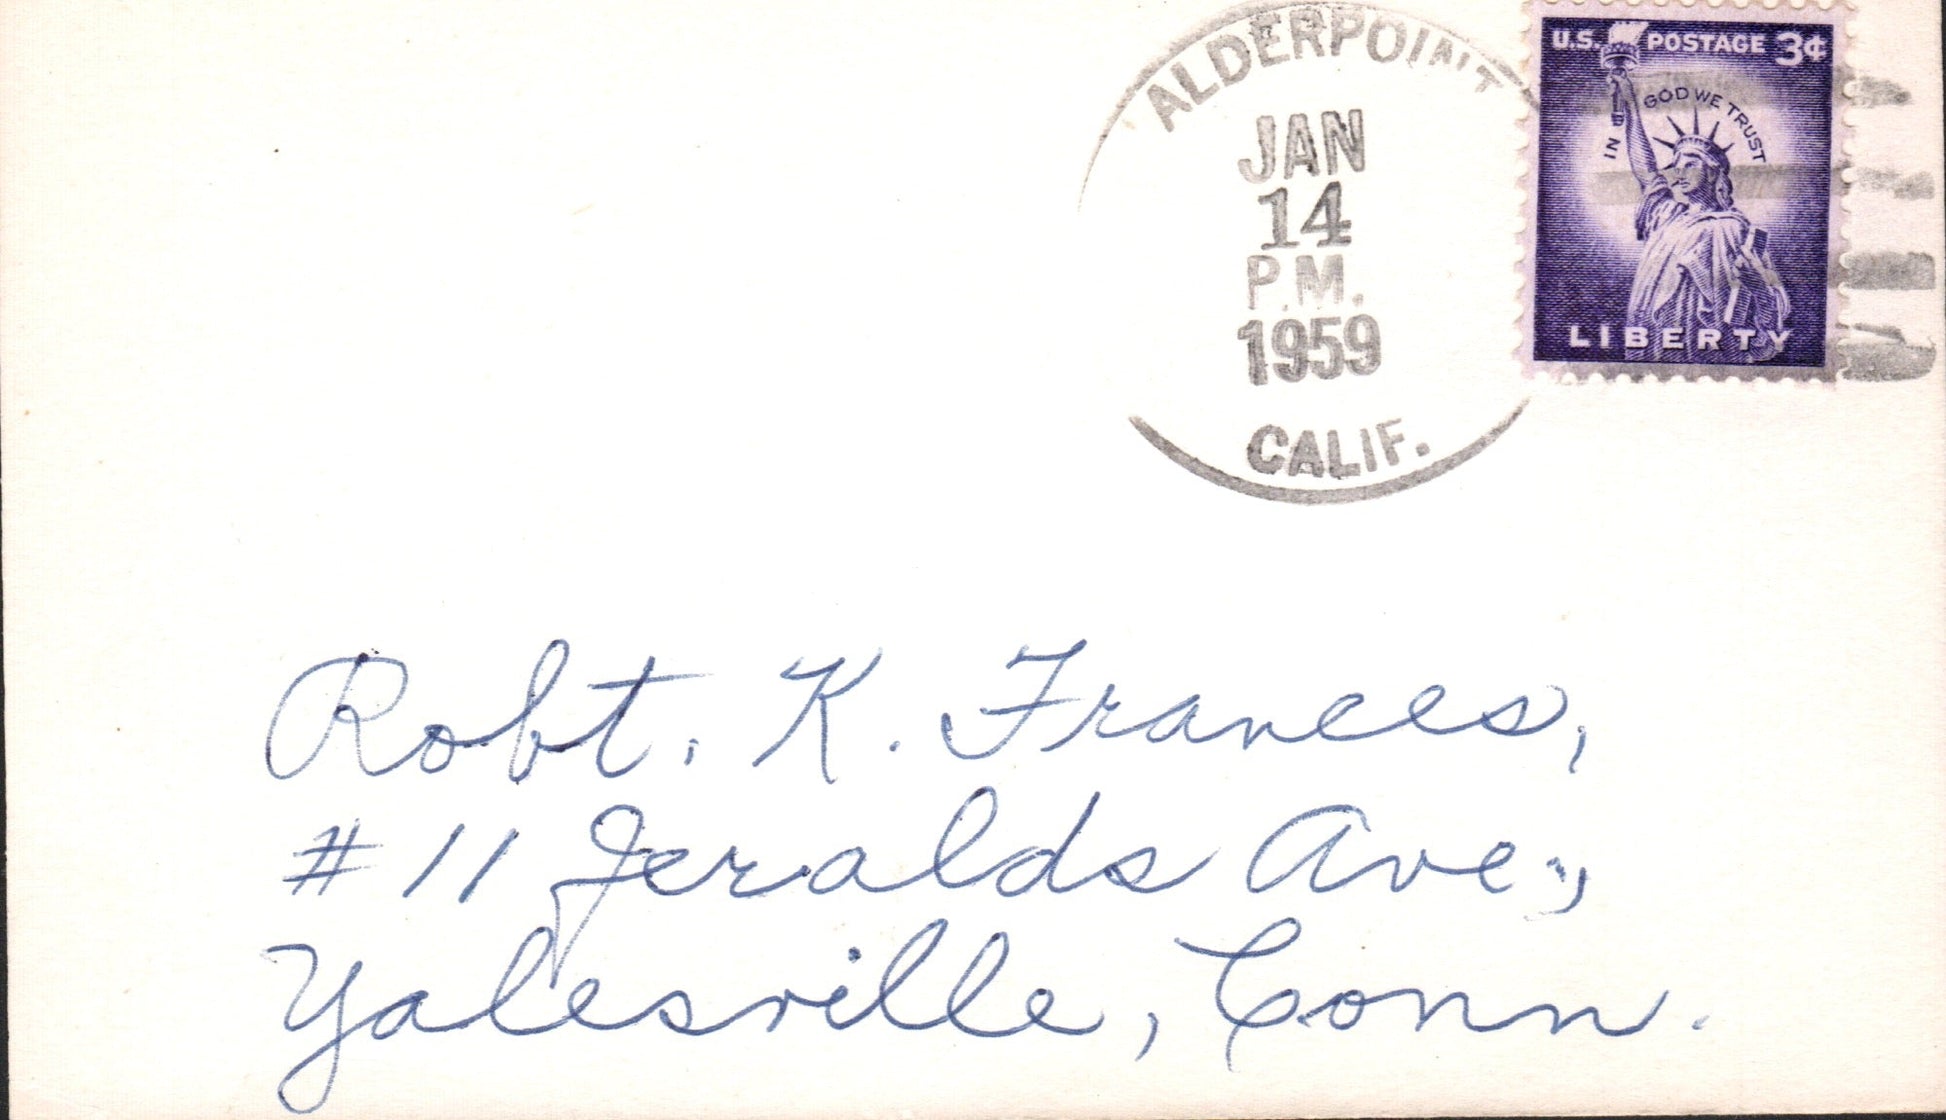 ALDERPOINT
JAN
14
P.M.
1959
CALIF.
U.S. POSTAGE 3¢
IN GOD WE TRUST
LIBERTY
Robt. K. Frances,
# 11 Jeralds Ave.,
Yalesville, Conn.